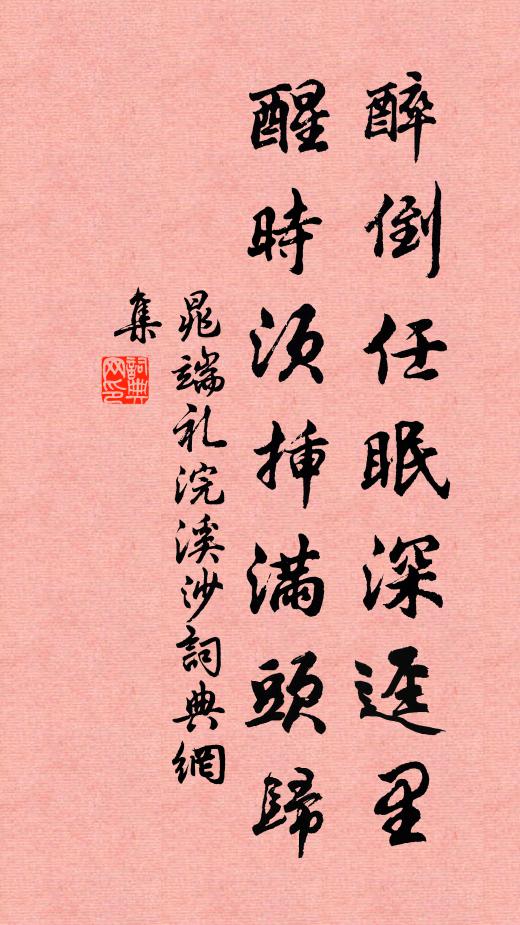 醉倒任眠深逕里
醒時須插滿頭歸
晁端礼浣溪沙詞典網
集
詞典
网印